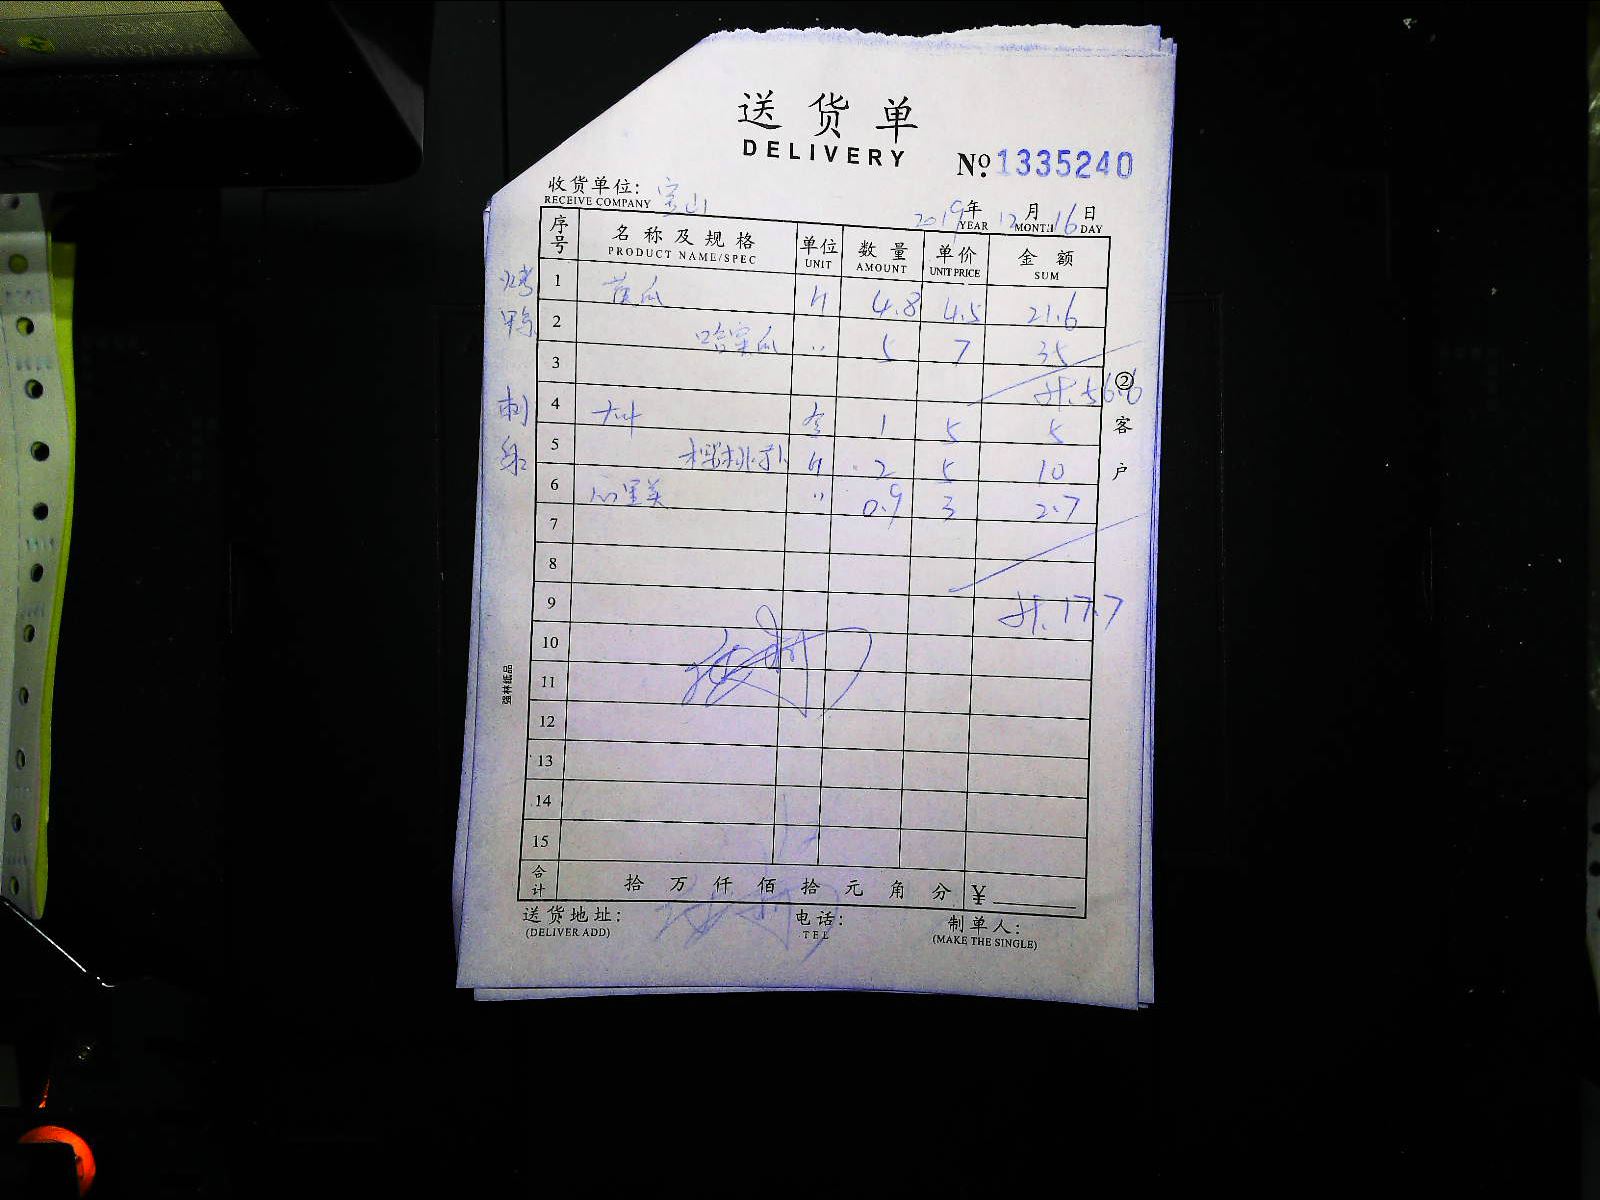 送货单
DELIVERY
No. 1335240
收货单位: 宝山
RECEIVE COMPANY
2019年 12月 16日
YEAR MONTH DAY
序号 名称及规格 单位 数量 单价 金额
PRODUCT NAME/SPEC UNIT AMOUNT UNIT PRICE SUM
烤鸭
1 黄瓜 斤 4.8 4.5 21.6
2 哈密瓜 〃 5 7 35
3 计.56.6
刺身
4 大叶 盒 1 5 5
5 斤 2 5 10
6 心里美 〃 0.9 3 2.7
7
8
9 计.17.7
10
11
12
13
14
15
合计 拾 万 仟 佰 拾 元 角 分 ¥
送货地址: 电话: 制单人:
(DELIVER ADD) TEL (MAKE THE SINGLE)
②客户
强林纸品